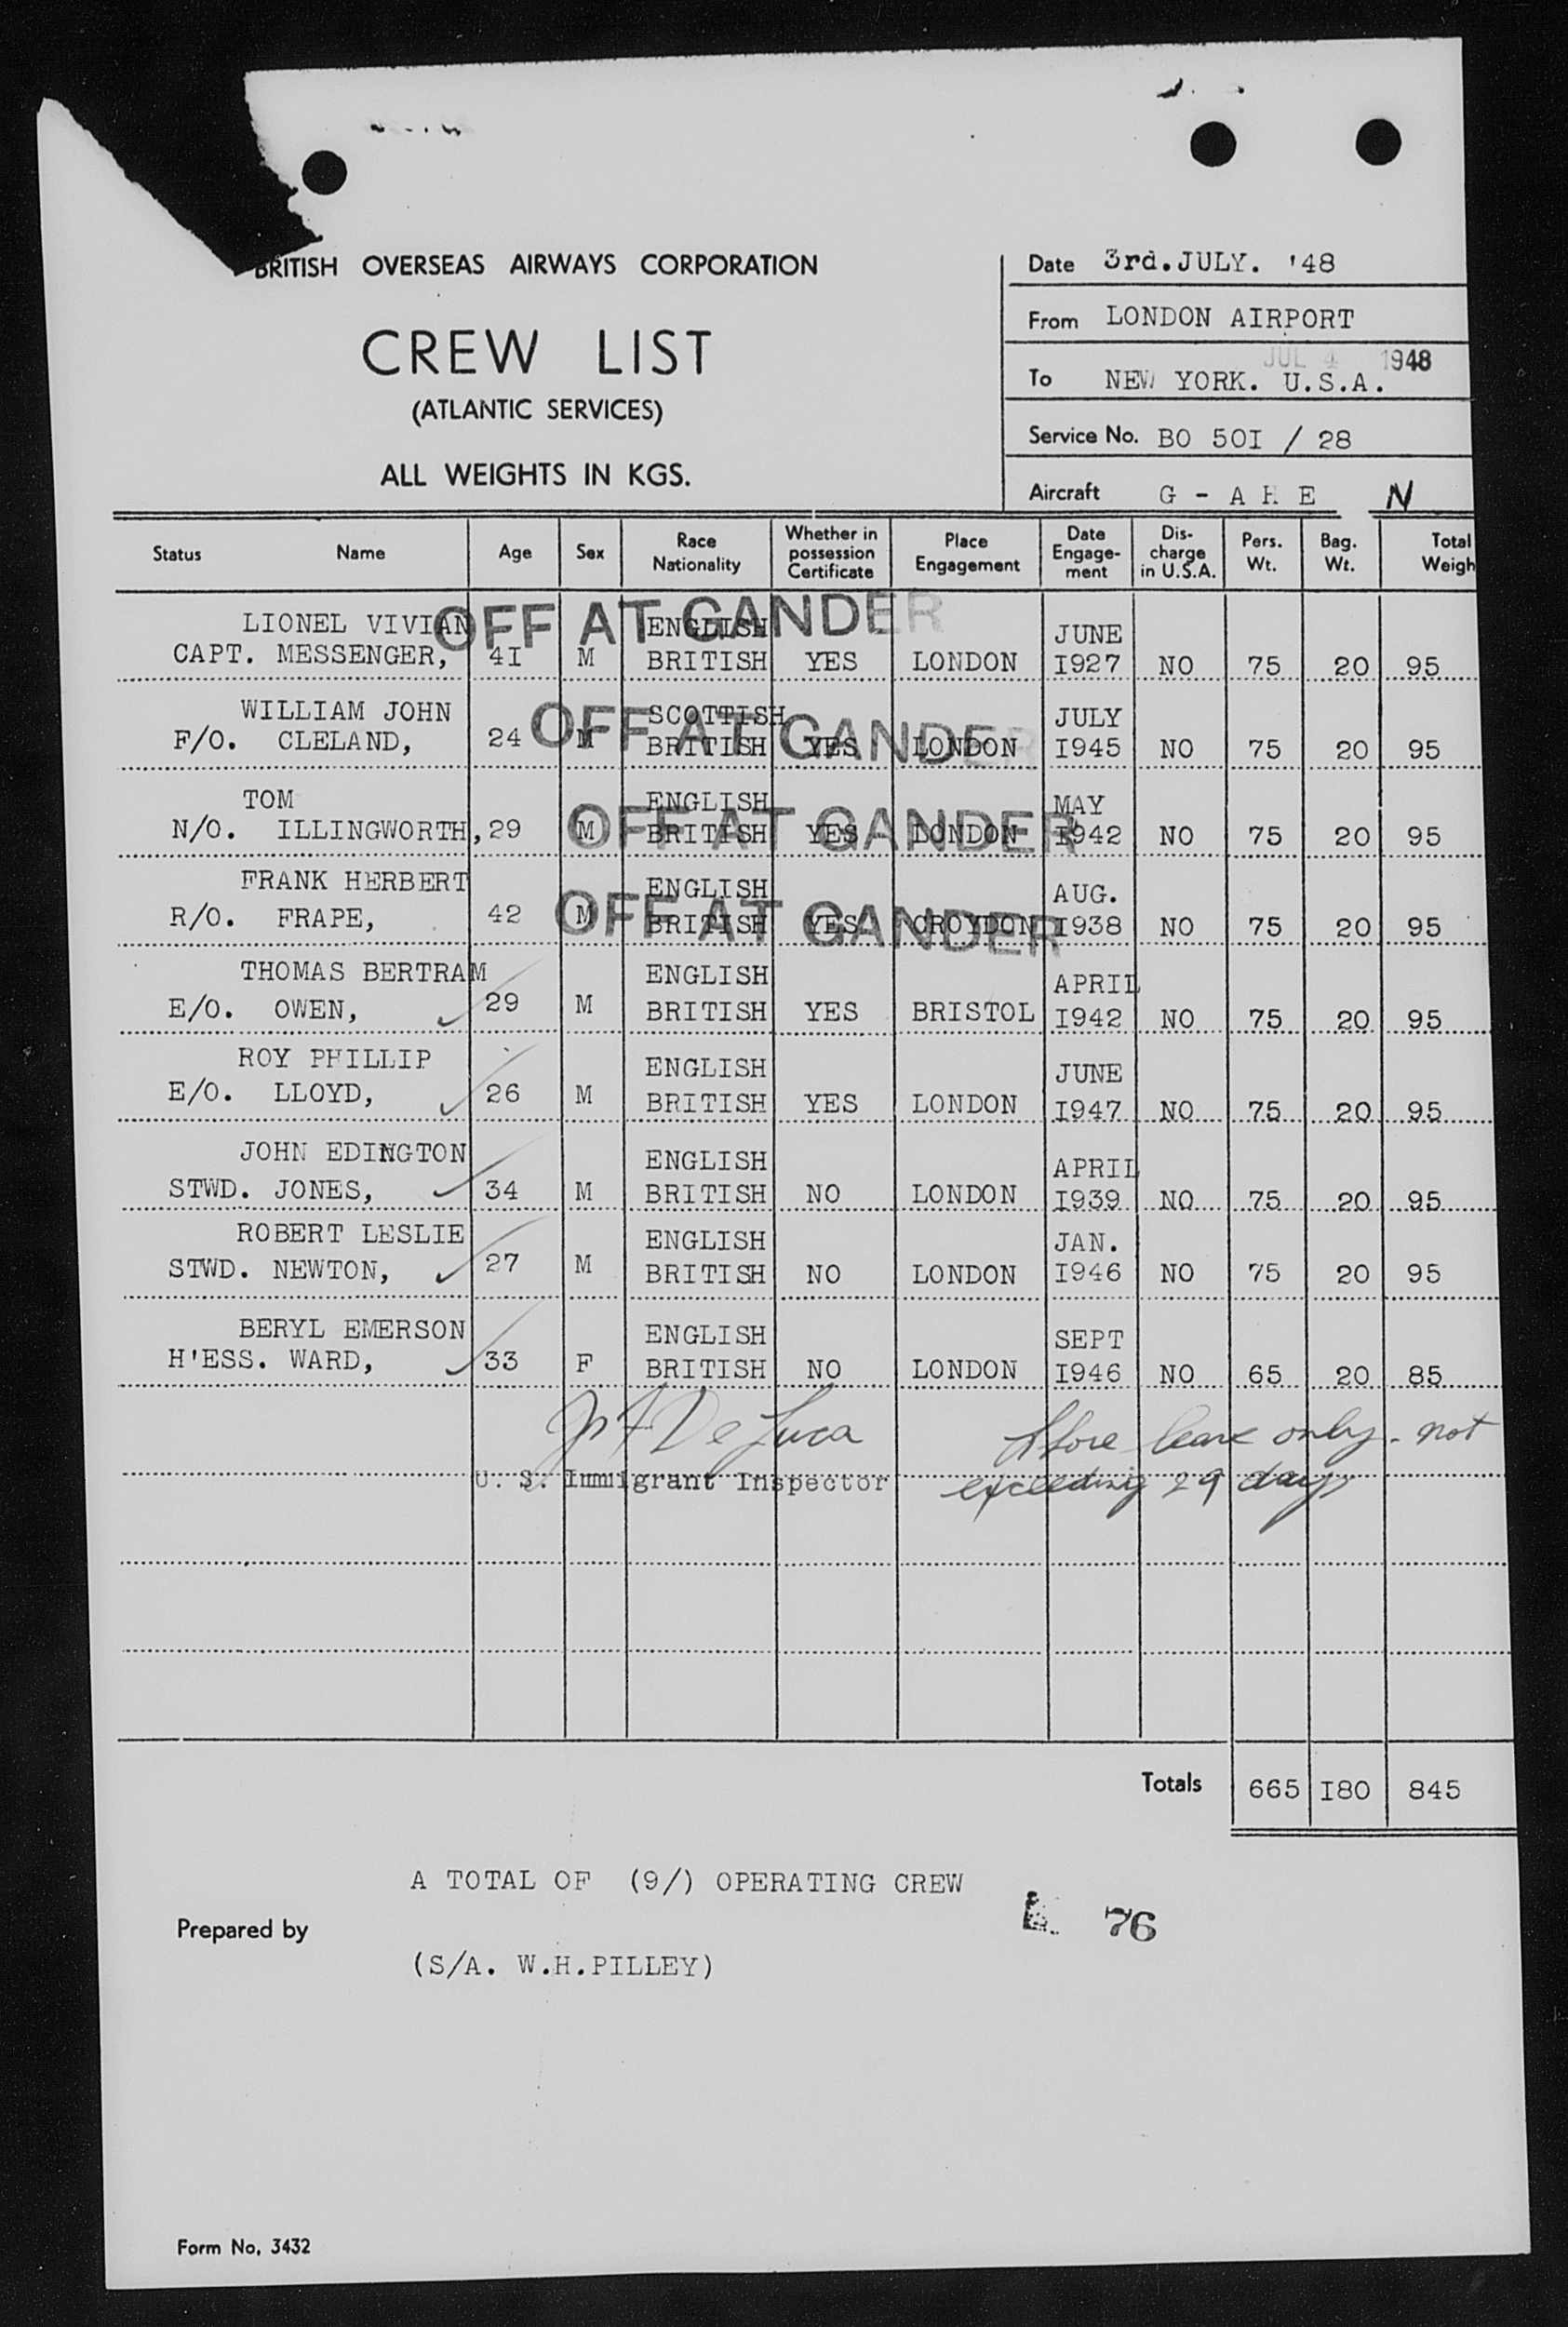 BRITISH OVERSEAS AIRWAYS CORPORATION
CREW LIST
(ATLANTIC SERVICES)
ALL WEIGHTS IN KGS.
Date 3rd.JULY. '48
From LONDON AIRPORT
JUL 4 1948
To NEW YORK. U.S.A.
Service No. BO 50I / 28
Aircraft G - A H E N
Status Name Age Sex Race Nationality Whether in possession Certificate Place Engagement Date Engage-ment Dis-charge in U.S.A. Pers. Wt. Bag. Wt. Total Weigh
OFF AT GANDER
LIONEL VIVIAN ENGLISH JUNE
CAPT. MESSENGER, 4I M BRITISH YES LONDON I927 NO 75 20 95
OFF AT GANDER
WILLIAM JOHN SCOTTISH JULY
F/O. CLELAND, 24 M BRITISH YES LONDON I945 NO 75 20 95
OFF AT GANDER
TOM ENGLISH MAY
N/O. ILLINGWORTH, 29 M BRITISH YES LONDON I942 NO 75 20 95
OFF AT GANDER
FRANK HERBERT ENGLISH AUG.
R/O. FRAPE, 42 M BRITISH YES CROYDON I938 NO 75 20 95
THOMAS BERTRAM ENGLISH APRIL
E/O. OWEN, 29 M BRITISH YES BRISTOL I942 NO 75 20 95
ROY PHILLIP ENGLISH JUNE
E/O. LLOYD, 26 M BRITISH YES LONDON I947 NO 75 20 95
JOHN EDINGTON ENGLISH APRIL
STWD. JONES, 34 M BRITISH NO LONDON I939 NO 75 20 95
ROBERT LESLIE ENGLISH JAN.
STWD. NEWTON, 27 M BRITISH NO LONDON I946 NO 75 20 95
BERYL EMERSON ENGLISH SEPT
H'ESS. WARD, 33 F BRITISH NO LONDON I946 NO 65 20 85
De Luca
U. S. Immigrant Inspector
Shore leave only - not
exceeding 29 days
Totals 665 I80 845
A TOTAL OF (9/) OPERATING CREW
76
Prepared by
(S/A. W.H.PILLEY)
Form No. 3432